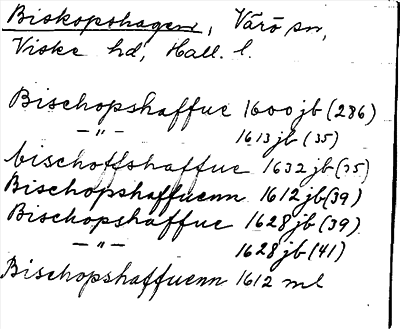 Biskopshagen, Värö sn,
Viske hd, Hall. l.
Bischopshaffue 1600 jb (286)
—"— 1613 jb (35)
bischoffshaffue 1632 jb (35)
Bischopshaffuenn 1612 jb (39)
Bischopshaffue 1628 jb (39)
—"— 1628 jb (41)
Bischopshaffuenn 1612 ml